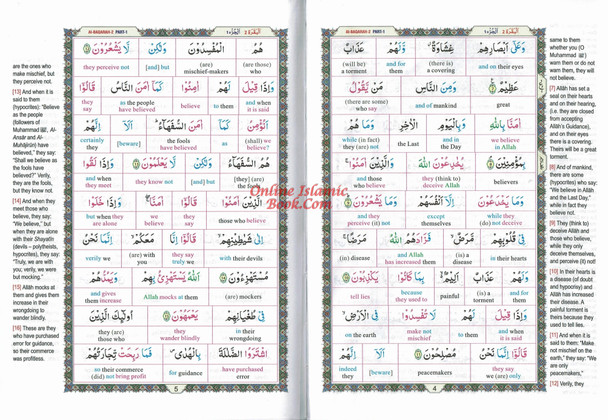 AL-BAQARAH-2 PART-1 الجزء ١ البقرة ٢
وَعَلَىٰ أَبْصَارِهِمْ غِشَاوَةٌ وَّلَهُمْ عَذَابٌ
and on their eyes (there is) a covering and for them (will be) a torment
عَظِيْمٌ ۝ وَمِنَ النَّاسِ مَنْ يَّقُوْلُ
great and of mankind (there are some) who say
اٰمَنَّا بِاللّٰهِ وَبِالْيَوْمِ الْاٰخِرِ وَمَا هُمْ
we believe in Allâh and in the Day the Last while (in fact) they (are) not
بِمُؤْمِنِيْنَ ۝ يُخٰدِعُوْنَ اللّٰهَ وَالَّذِيْنَ اٰمَنُوْا
believers they (think to) deceive Allâh and those who believe
وَمَا يَخْدَعُوْنَ اِلَّآ اَنْفُسَهُمْ وَمَا يَشْعُرُوْنَ ۝
while they (do) not deceive except themselves and they perceive (it) not!
فِيْ قُلُوْبِهِمْ مَّرَضٌ فَزَادَهُمُ اللّٰهُ مَرَضًا
in their hearts (is) a disease and Allâh has increased them (in) disease
وَلَهُمْ عَذَابٌ اَلِيْمٌ بِمَا كَانُوْا يَكْذِبُوْنَ ۝
and for them (is) a torment painful because they used to tell lies
وَاِذَا قِيْلَ لَهُمْ لَا تُفْسِدُوْا فِي الْاَرْضِ
and when it is said to them make not mischief on the earth
قَالُوْٓا اِنَّمَا نَحْنُ مُصْلِحُوْنَ ۝ اَلَآ اِنَّهُمْ
they say we (are) only peacemakers [beware] indeed they
4
same to them
whether you (O
Muhammad ﷺ)
warn them or do not
warn them, they will
not believe.
[7] Allâh has set a
seal on their hearts
and on their hearing,
(i.e. they are closed
from accepting
Allâh's Guidance),
and on their eyes
there is a covering.
Theirs will be a great
torment.
[8] And of mankind,
there are some
(hypocrites) who say:
"We believe in Allâh
and the Last Day,"
while in fact they
believe not.
[9] They (think to)
deceive Allâh and
those who believe,
while they only
deceive themselves,
and perceive (it) not!
[10] In their hearts
is a disease (of doubt
and hypocrisy) and
Allâh has increased
their disease. A
painful torment is
theirs because they
used to tell lies.
[11] And when it is
said to them: "Make
not mischief on the
earth," they say: "We
are only
peacemakers."
[12] Verily, they
AL-BAQARAH-2 PART-1 الجزء ١ البقرة ٢
هُمُ الْمُفْسِدُوْنَ وَلٰكِنْ لَّا يَشْعُرُوْنَ ۝
(are) those who (are) mischief-makers [and] but they perceive not
وَاِذَا قِيْلَ لَهُمْ اٰمِنُوْا كَمَآ اٰمَنَ النَّاسُ قَالُوْٓا
and when it is said to them believe as the people have believed they say
اَنُؤْمِنُ كَمَآ اٰمَنَ السُّفَهَآءُ اَلَآ اِنَّهُمْ
(shall) we believe? as the fools have believed [beware] certainly they
هُمُ السُّفَهَآءُ وَلٰكِنْ لَّا يَعْلَمُوْنَ ۝ وَاِذَا لَقُوا
[they] (are) the fools [and] but they know not and when they meet
الَّذِيْنَ اٰمَنُوْا قَالُوْٓا اٰمَنَّا وَاِذَا خَلَوْا
those who believe they say we believe but when they are alone
اِلٰى شَيٰطِيْنِهِمْ قَالُوْٓا اِنَّا مَعَكُمْ اِنَّمَا نَحْنُ
with their devils they say truly we (are) with you verily we
مُسْتَهْزِءُوْنَ ۝ اَللّٰهُ يَسْتَهْزِئُ بِهِمْ وَيَمُدُّهُمْ
(are) mockers Allâh mocks at them and gives them increase
فِيْ طُغْيَانِهِمْ يَعْمَهُوْنَ ۝ اُولٰٓئِكَ الَّذِيْنَ
in their wrongdoing they wander blindly they (are) those who
اشْتَرَوُا الضَّلٰلَةَ بِالْهُدٰى فَمَا رَبِحَتْ تِّجَارَتُهُمْ
have purchased error for guidance so their commerce (did) not bring profit
5
are the ones who
make mischief, but
they perceive not.
[13] And when it is
said to them
(hypocrites): "Believe
as the people
(followers of
Muhammad ﷺ, Al-
Ansâr and Al-
Muhâjirûn) have
believed," they say:
"Shall we believe as
the fools have
believed?" Verily,
they are the fools,
but they know not.
[14] And when they
meet those who
believe, they say:
"We believe," but
when they are alone
with their Shayatîn
(devils – polytheists,
hypocrites), they say:
"Truly, we are with
you; verily, we were
but mocking."
[15] Allâh mocks at
them and gives them
increase in their
wrongdoing to
wander blindly.
[16] These are they
who have purchased
error for guidance,
so their commerce
was profitless.
Online Islamic
Book.Com